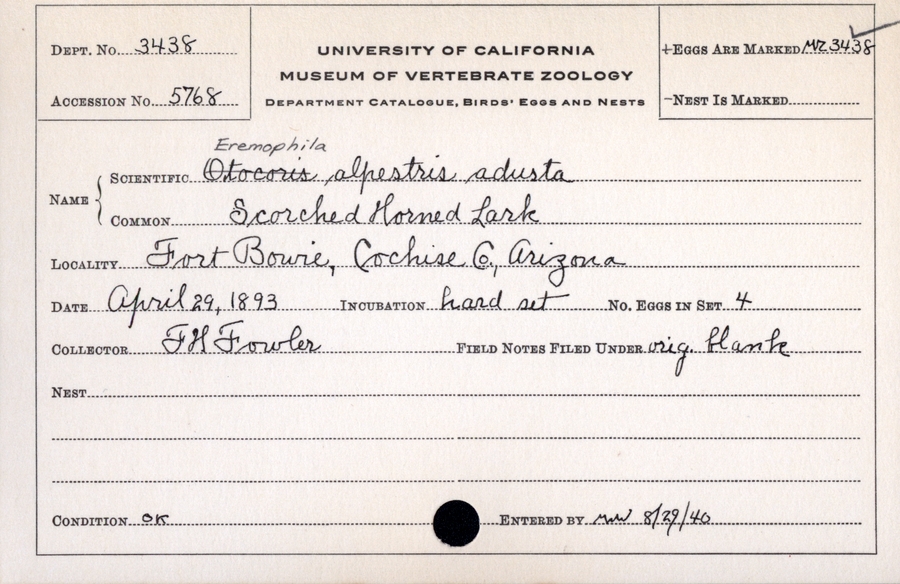 Dept. No. 3438
UNIVERSITY OF CALIFORNIA
MUSEUM OF VERTEBRATE ZOOLOGY
Department Catalogue, Birds' Eggs and Nests
+Eggs Are Marked MVZ3438
Accession No. 5768
-Nest Is Marked
Eremophila
Name
Scientific Otocoris alpestris adusta
Common Scorched Horned Lark
Locality Fort Bowie, Cochise Co, Arizona
Date April 29, 1893 Incubation hard set No. Eggs in Set 4
Collector FH Fowler Field Notes Filed Under orig. blank
Nest
Condition OK Entered by 8/29/40